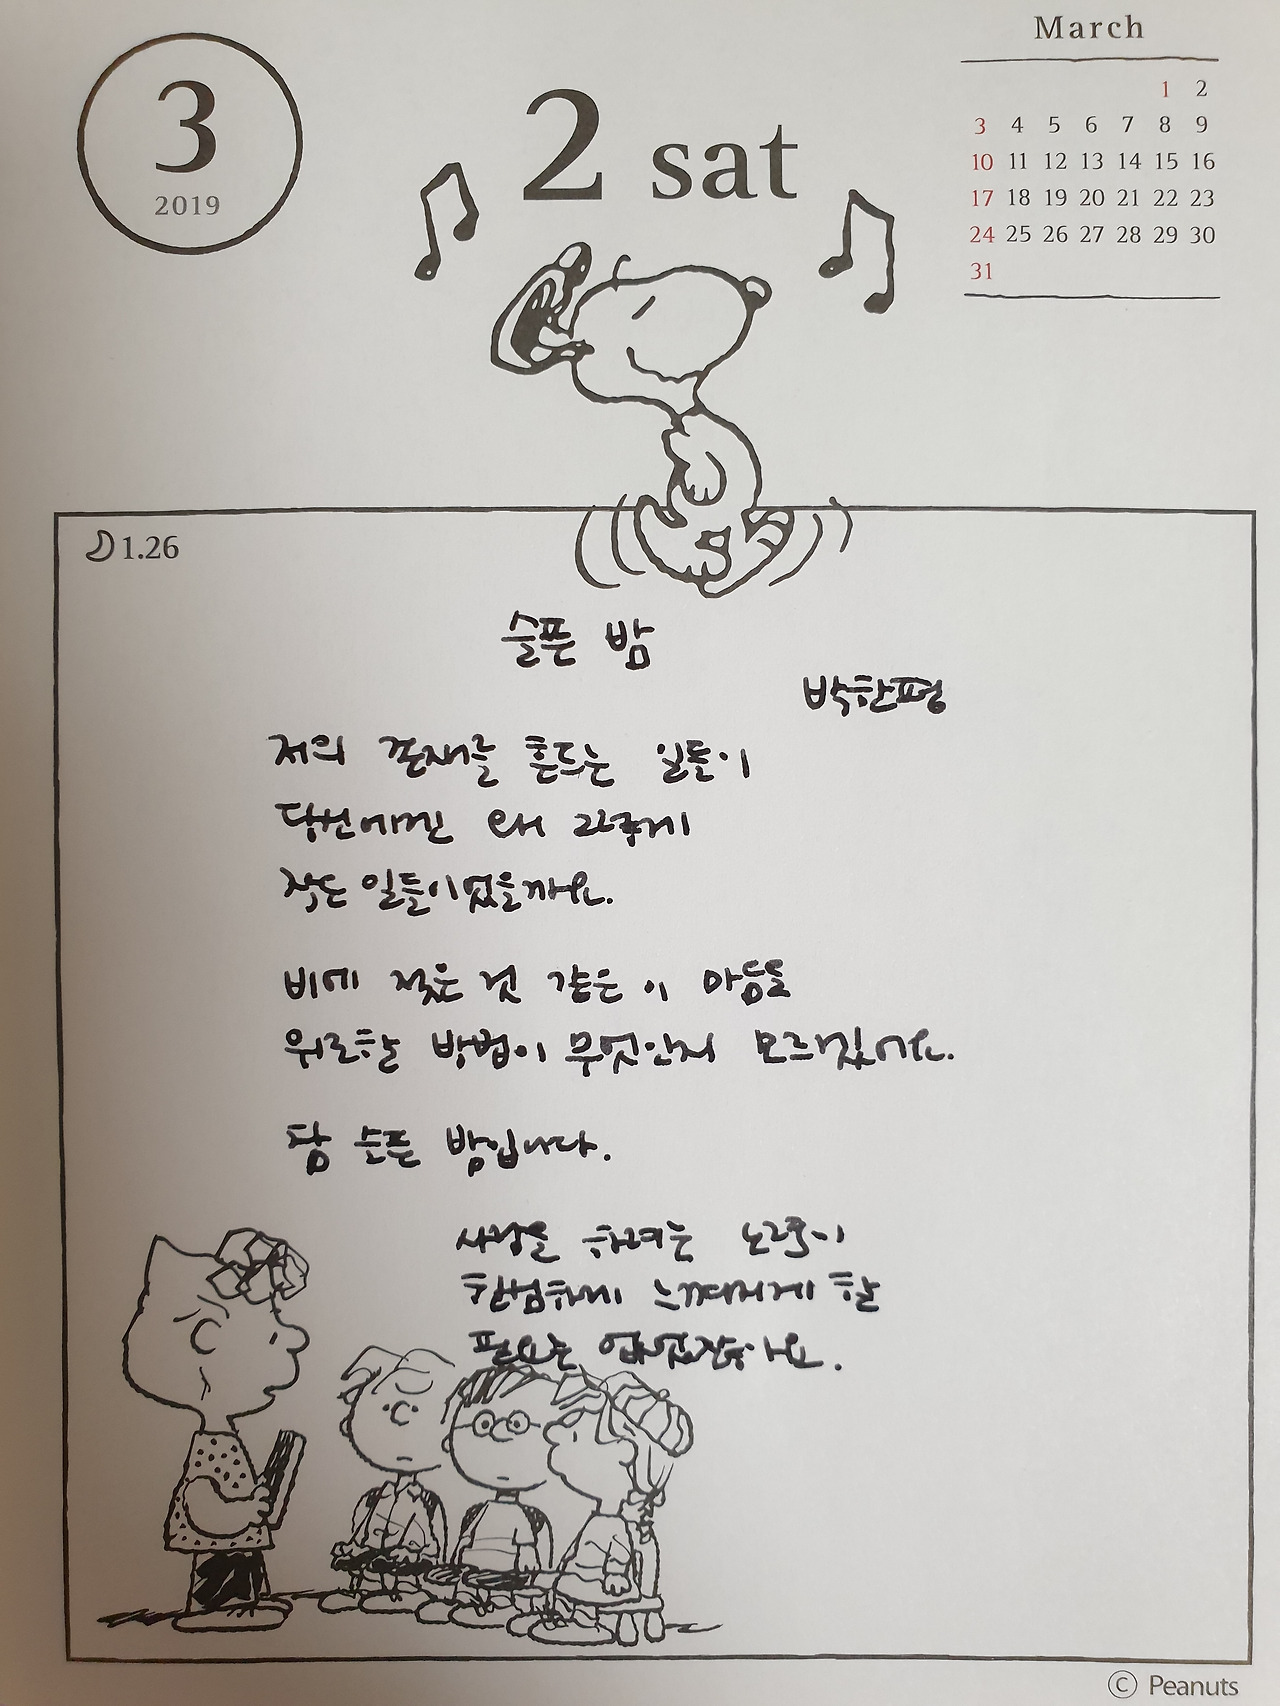 March
3
2019
2 sat
1 2
3 4 5 6 7 8 9
10 11 12 13 14 15 16
17 18 19 20 21 22 23
24 25 26 27 28 29 30
31
1.26
슬픈 밤
박한평
저의 존재를 흔드는 일들이
당신에겐 왜 그렇게
작은 일들이었을까요.
비에 젖은 것 같은 이 마음을
위로할 방법이 무엇인지 모르겠어요.
참 슬픈 밤입니다.
사랑을 하려는 노력이
한심하게 느껴지게 할
필요는 없었잖아요.
© Peanuts